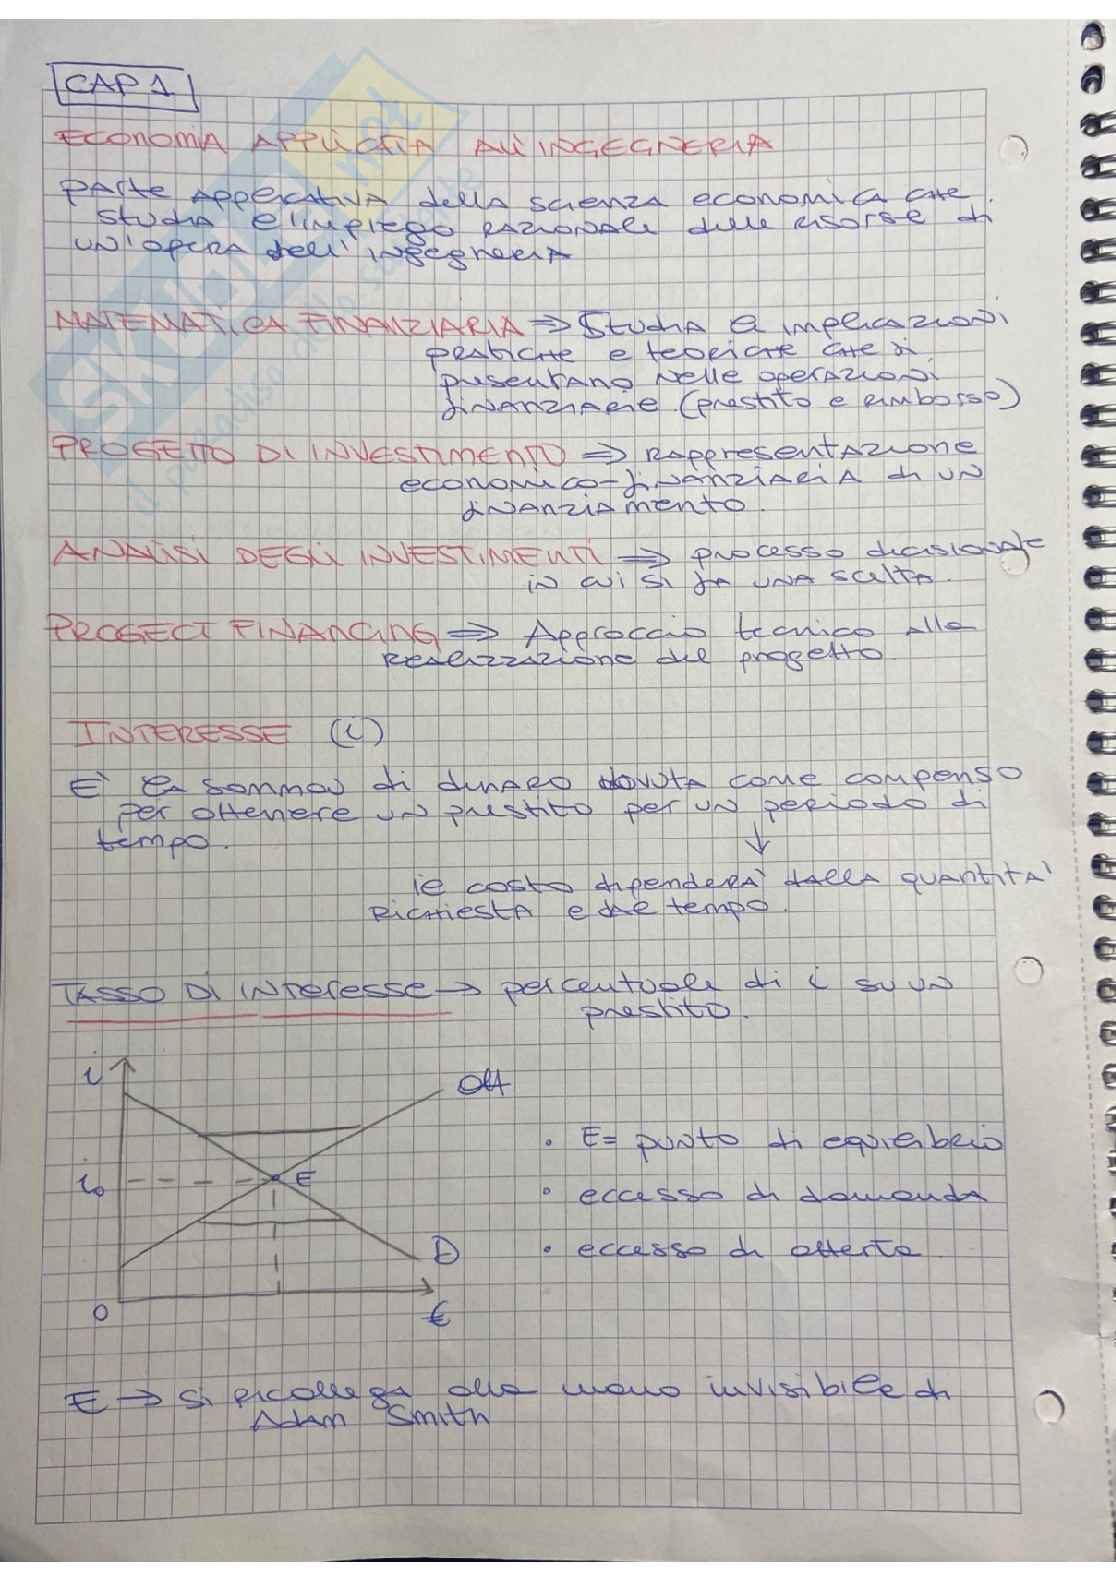 CAP 1
ECONOMIA APPLICATA ALL'INGEGNERIA
parte applicativa della scienza economica che
studia l'impiego razionale delle risorse di
un'opera dell'ingegneria
MATEMATICA FINANZIARIA ⇒ Studia le implicazioni
pratiche e teoriche che si
presentano nelle operazioni
finanziarie (prestito e rimborso)
PROGETTO DI INVESTIMENTO ⇒ Rappresentazione
economico-finanziaria di un
finanziamento.
ANALISI DEGLI INVESTIMENTI ⇒ processo decisionale
in cui si fa una scelta.
PROGECT FINANCING ⇒ Approccio tecnico alla
realizzazione del progetto
INTERESSE (i)
E' la somma di denaro dovuta come compenso
per ottenere un prestito per un periodo di
tempo.
↓
il costo dipenderà dalla quantità
richiesta e dal tempo.
TASSO DI INTERESSE → percentuale di i su un
prestito.
i
Off
• E = punto di equilibrio
i₀ E
• eccesso di domanda
D
• eccesso di offerta.
0 €
E → si ricollega alla mano invisibile di
Adam Smith